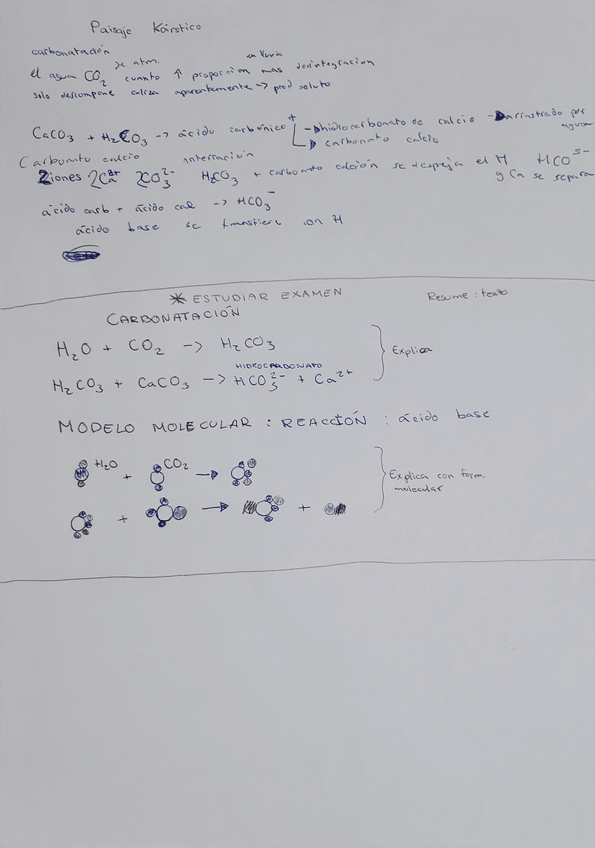 Paisaje Kárstico
carbonatación
de atm. en lluvia
el agua CO2 cuanto ↑ proporcion mas desintegracion
solo descompone caliza aparentemente -> prod soluto
CaCO3 + H2CO3 -> ácido carbónico + -> hidrocarbonato de calcio -> arrastrado por agua
-> carbonato calcio
Carbonato calcio interración
2 iones 2Ca2+ 2CO3 2- H2CO3 + carbonato calcio se despeja el H HCO3-
y Ca se separa
ácido carb + ácido cal -> HCO3-
ácido base se transfiere ion H
* ESTUDIAR EXAMEN Resume: texto
CARBONATACIÓN
H2O + CO2 -> H2CO3
Explica
HIDROCARBONATO
H2CO3 + CaCO3 -> HCO3 2- + Ca2+
MODELO MOLECULAR : REACCIÓN : ácido base
H2O + CO2 ->
Explica con form. molecular
+ -> +